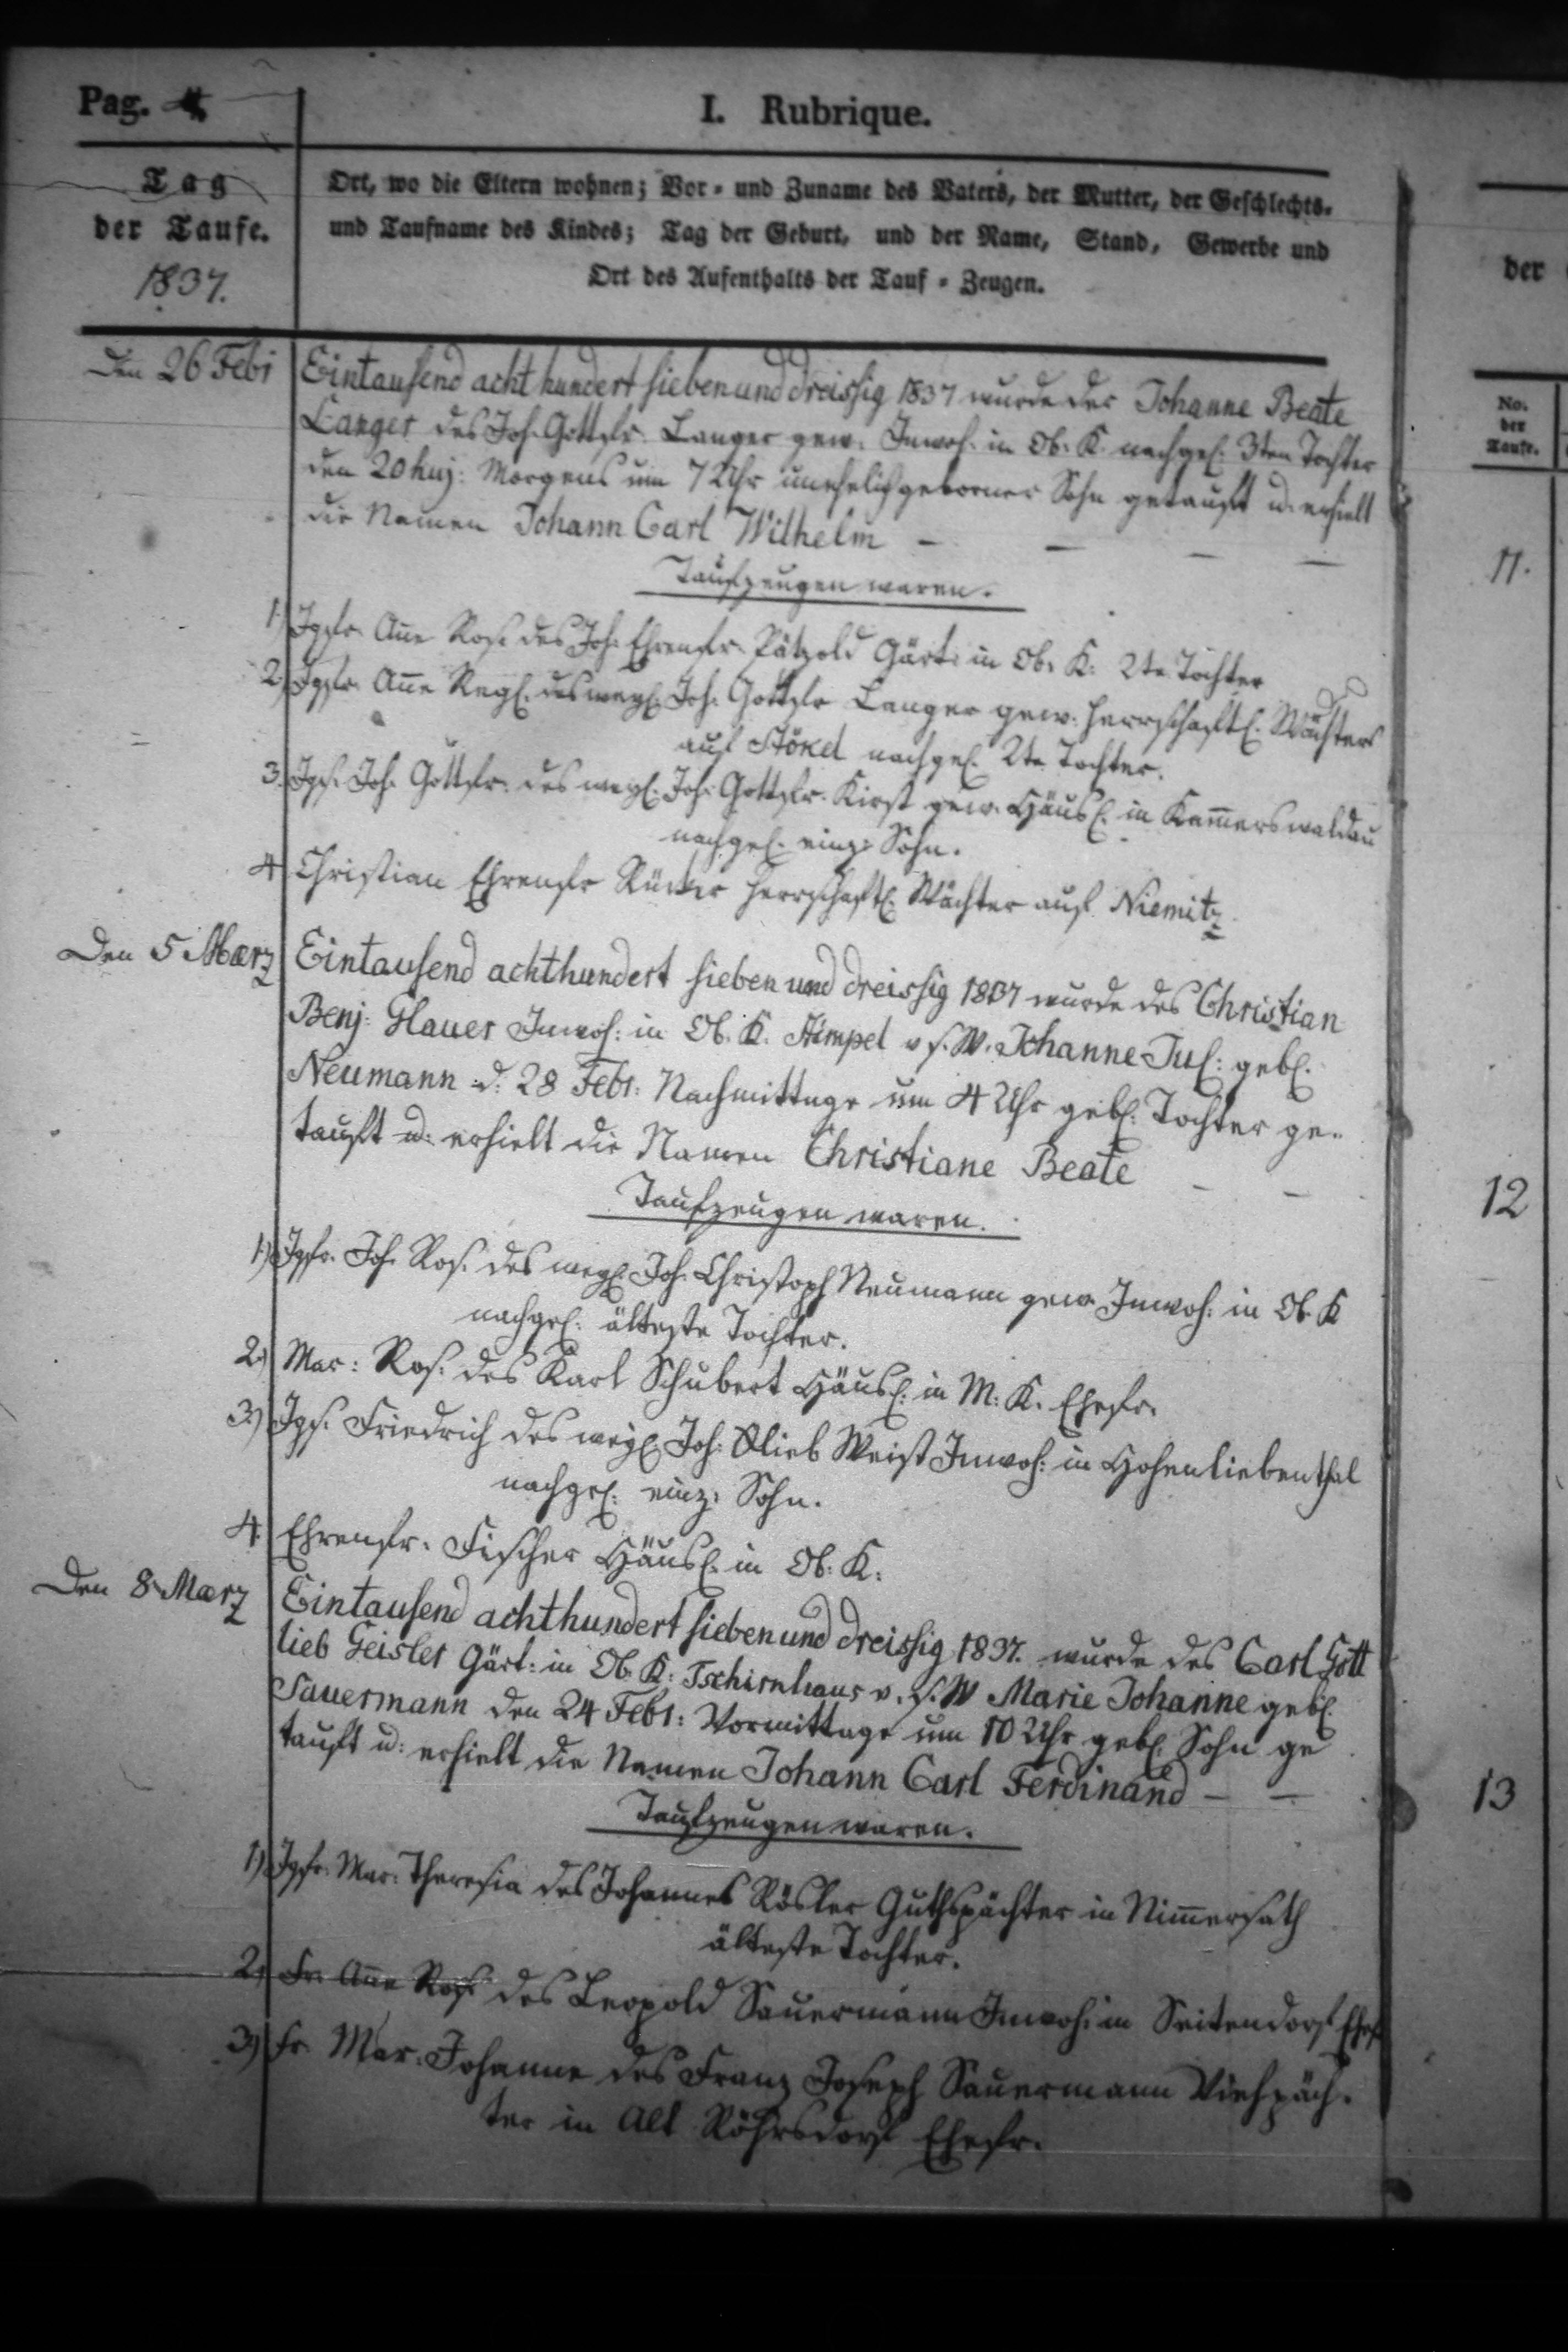 Pag. 4
I. Rubrique.
Tag
der Taufe.
1837.
Ort, wo die Eltern wohnen; Vor- und Zuname des Vaters, der Mutter, der Geschlechts-
und Taufname des Kindes; Tag der Geburt, und der Name, Stand, Gewerbe und
Ort des Aufenthalts der Tauf-Zeugen.
Den 26 Febr
Eintausend acht hundert sieben und dreissig 1837 wurde der Johanne Beate
Langer des Joh. Gottfr. Langer gew. Inwoh. in Ob. K. nachgel. 3ten Tochter
den 20 huj: Morgens um 7 Uhr unehelich geborner Sohn getauft u. erhielt
die Namen Johann Carl Wilhelm – – – –
Taufzeugen waren.
1.) Jgfr. Anne Ros. des Joh. Ehrenfr. Pätzold Gärt. in Ob. K. 2te Tochter
2.) Jgfr. Anne Regl. des weyl. Joh. Gottfr Langer gew. herrschaftl. Wächters
auf Stökel nachgel. 2te Tochter.
3. Jgs. Joh. Gottfr. des weyl. Joh. Gottfr. Kirst gew. Häusl. in Kam̄erswaldau
nachgel. einz: Sohn.
4 Christian Ehrenfr herrschaftl. Wächter auf Niemitz
Den 5 Maerz
Eintausend achthundert sieben und dreissig 1837 wurde des Christian
Benj: Glauer Inwoh: in Ob. K. Stimpel v s. W. Johanne Jul: gebl.
Neumann d. 28 Febr: Nachmittags um 4 Uhr gebl. Tochter ge-
tauft u: erhielt die Namen Christiane Beate – –
Taufzeugen waren.
1.) Jgfr. Joh. Ros. des weyl. Joh. Christoph Neumann gew Inwoh: in Ob. K
nachgel: älteste Tochter.
2.) Mar: Ros. des Karl Schubert Häusl. in M. K. Ehefr.
3.) Jgs. Friedrich des weyl. Joh: Weist Inwoh: in Hohenliebenthal
nachgel: einz: Sohn.
4. Ehrenfr. Fischer Häusl. in Ob. K.
Den 8 Maerz
Eintausend achthundert sieben und dreissig 1837. wurde des Carl Gott
lieb Geisler Gärt: in Ob. K: Tschirnhaus v. s. W Marie Johanne gebl.
Sauermann den 24 Febr: Vormittags um 10 Uhr gebl. Sohn ge
tauft u: erhielt die Namen Johann Carl Ferdinand – –
Taufzeugen waren.
1.) Jgfr. Mar. Theresia des Johannes Rösler Guthspächter in Nim̄ersath
älteste Tochter.
2.) Fr. Anne Ros. des Leopold Sauermann Inwoh: in Seitendorf Ehefr
3.) Fr. Mar. Johanne des Franz Joseph Sauermann Viehpäch-
ter in Alt Röhrsdorf Ehefr.
der
No.
der
Taufe.
11.
12
13